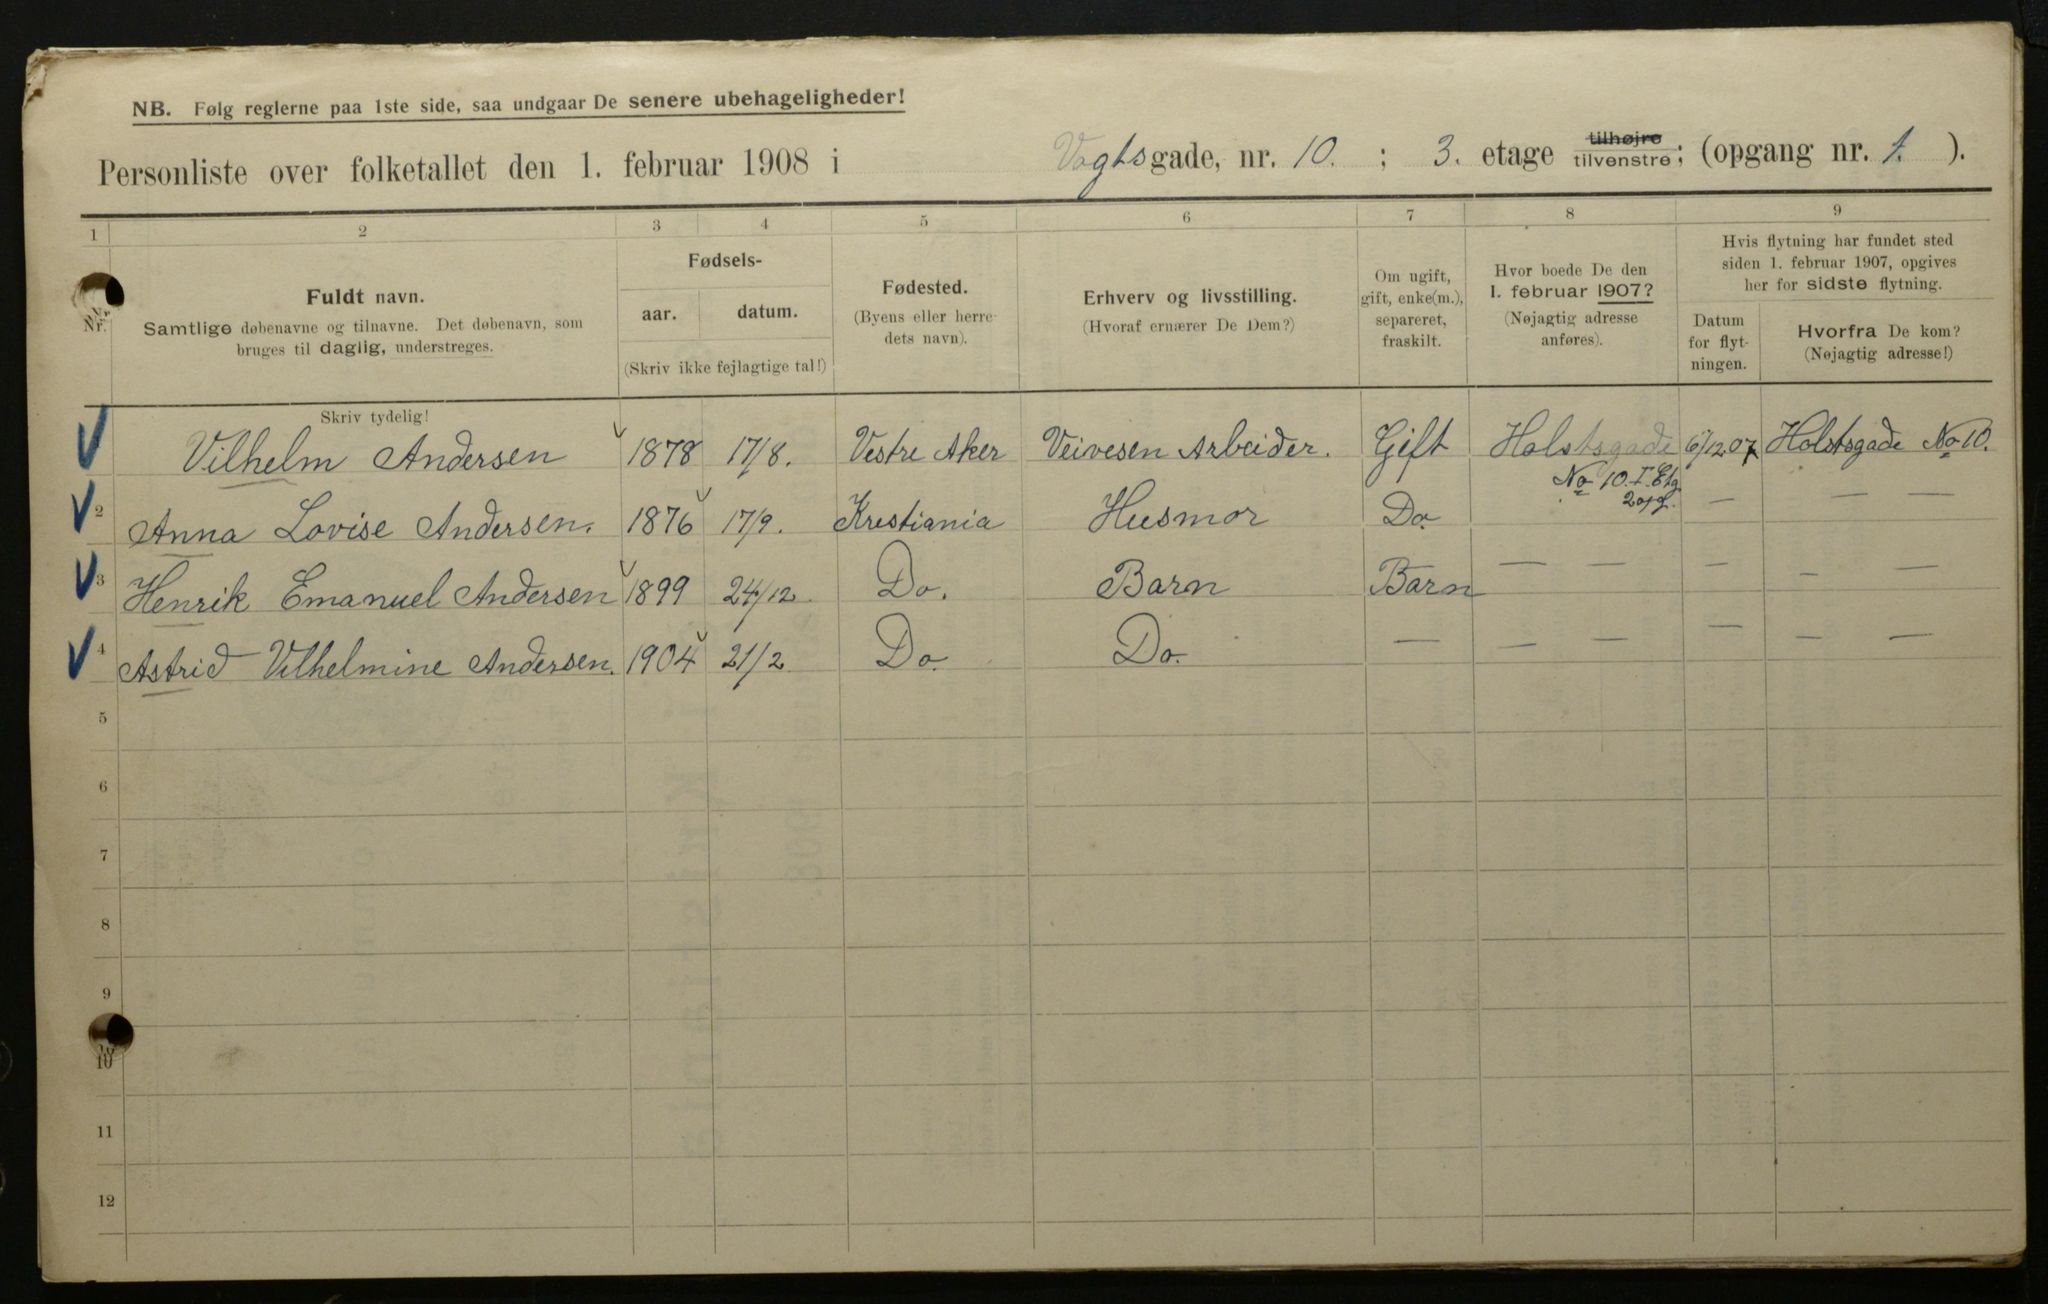 NB. Følg reglerne paa 1ste side, saa undgaar De senere ubehageligheder!
Personliste over folketallet den 1. februar 1908 i Vogtsgade, nr. 10. ; 3. etage tilhøjre tilvenstre; (opgang nr. 1. ).
1 2 3 4 5 6 7 8 9
Nr.
Fuldt navn.
Samtlige døbenavne og tilnavne. Det døbenavn, som
bruges til daglig, understreges.
Fødsels-
aar. datum.
(Skriv ikke fejlagtige tal!)
Fødested.
(Byens eller herre-
dets navn).
Erhverv og livsstilling.
(Hvoraf ernærer De Dem?)
Om ugift,
gift, enke(m.),
separeret,
fraskilt.
Hvor boede De den
1. februar 1907?
(Nøjagtig adresse
anføres).
Hvis flytning har fundet sted
siden 1. februar 1907, opgives
her for sidste flytning.
Datum
for flyt-
ningen.
Hvorfra De kom?
(Nøjagtig adresse!)
Skriv tydelig!
Vilhelm Andersen 1878 17/8. Vestre Aker Veivesen Arbeider. Gift Holstsgade 6/12.07 Holstsgade No 10.
No 10. I. Etg.
2 opg.
2 Anna Lovise Andersen. 1876 17/9. Krestiania Husmor Do. — — —
3 Henrik Emanuel Andersen 1899 24/12. Do. Barn Barn — — — — —
4 Astrid Vilhelmine Andersen. 1904 21/2 Do. Do. — — — — — —
5
6
7
8
9
10
11
12